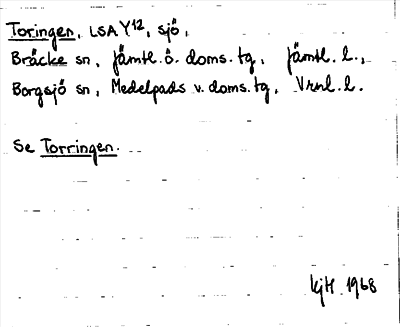 Toringen, LSA Y12, sjö,
Bräcke sn, Jämtl. ö. doms. tg, Jämtl. l.,
Borgsjö sn, Medelpads v. doms. tg, Vrnl. l.
Se Torringen.
kjH 1968